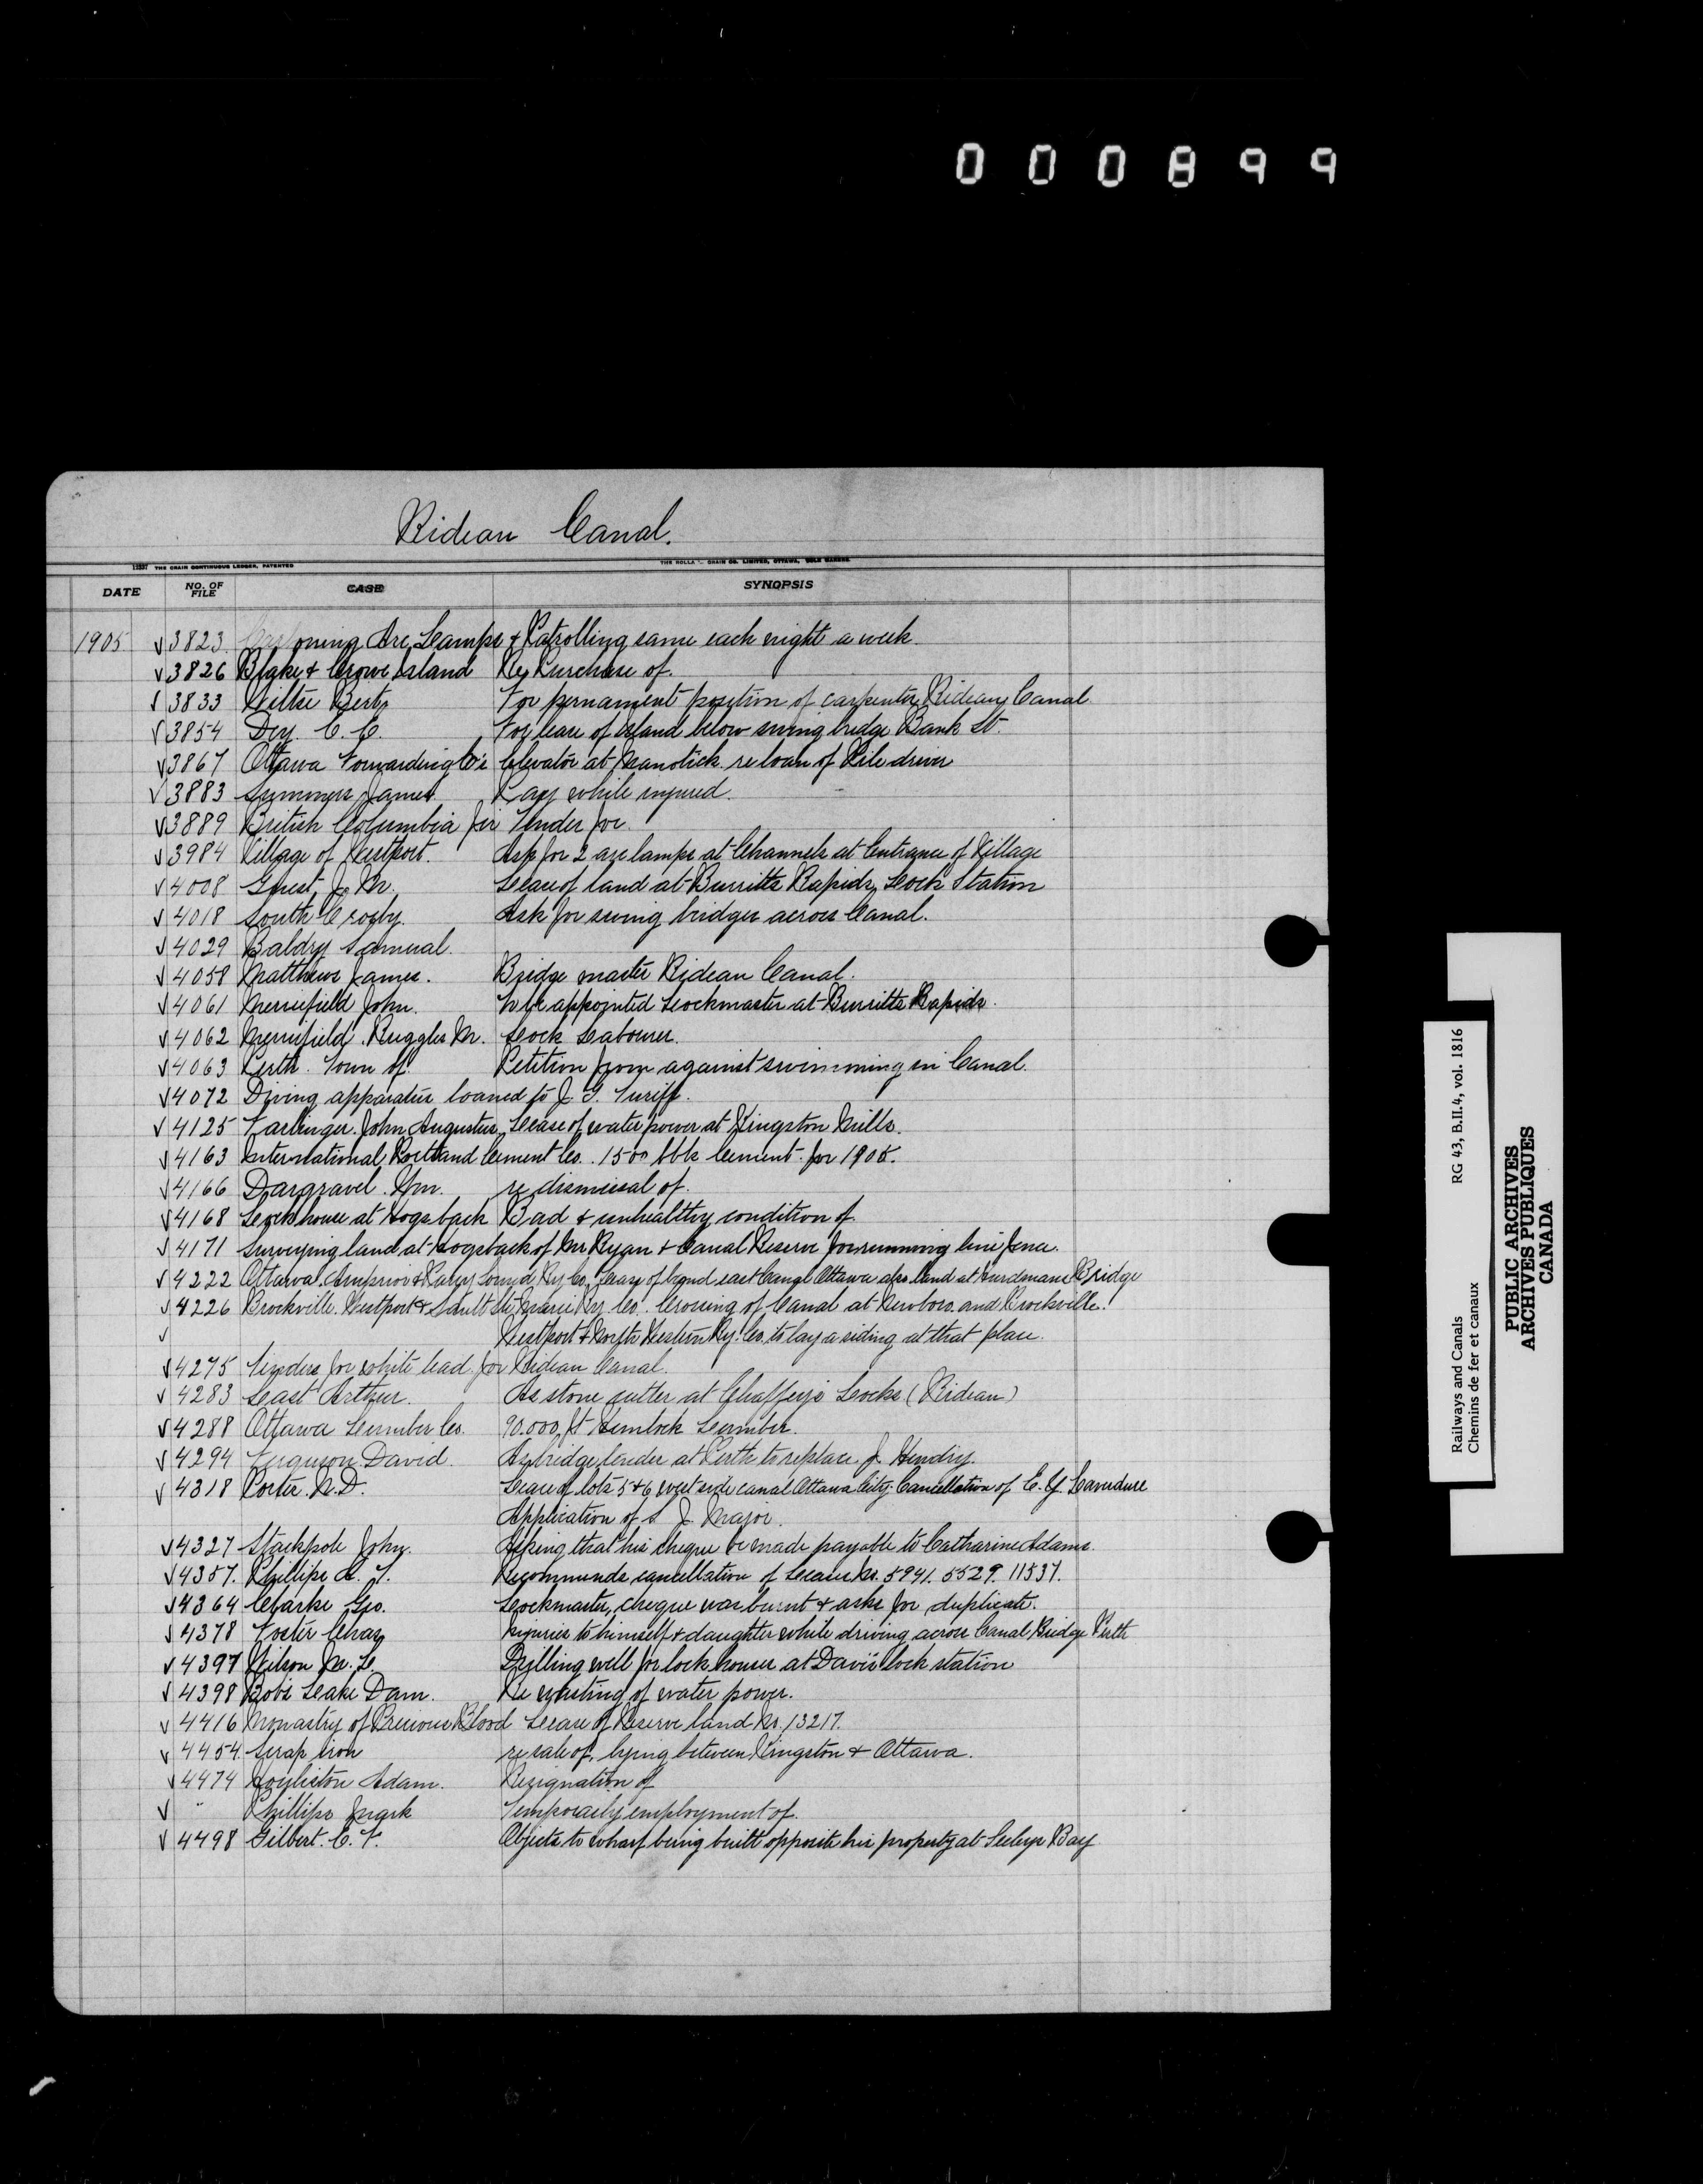 000899
Rideau Canal.
12237 THE CRAIN CONTINUOUS LEDGER, PATENTED
THE ROLLA L. CRAIN CO. LIMITED, OTTAWA, SOLE MAKERS.
DATE NO. OF FILE CASE SYNOPSIS
1905 √ 3823 Arc Lamps & Patrolling same each night a week.
√ 3826 Blake & Crowe Island Re Purchase of.
√ 3833 Wiltse Bert, For pernament position of carpenter Rideau Canal
√ 3854 Dey. C. C. For lease of Island below swing bridge Bank St.
√ 3867 Ottawa Forwarding Co's Elevator at Manotick re loan of Pile driver
√ 3883 Summers James Pay while injured.
√ 3889 British Columbia fir Tender for
√ 3984 Village of Westport. Ask for 2 arc lamps at Channels at Entrance of Village
√ 4008 Guest, J. M. Lease of land at Burritts Rapids, Lock Station
√ 4018 South Crosby. Ask for swing bridges across Canal.
√ 4029 Baldry Samual.
√ 4058 Matthews James. Bridge master Rideau Canal.
√ 4061 Merrifield John. To be appointed Lockmaster at Burritts Rapids.
√ 4062 Merrifield. Ruggles M. Lock Labourer.
√ 4063 Perth. Town of Petition from against swimming in Canal.
√ 4072 Diving apparatus loaned to J. G. Turiff.
√ 4125 Farlinger. John Augustus, Lease of water power at Kingston Mills.
√ 4163 International Portland Cement Co. 1500 bbls Cement for 1905.
√ 4166 Dargravel. Wm. re dismissal of.
√ 4168 Lock house at Hogs back Bad & unhealthy condition of.
√ 4171 Surveying land at Hogsback of Mr Ryan & Canal Reserve for running line fence.
√ 4222 Ottawa. Arnprior & Parry Sound Ry Co. Lease of land east Canal Ottawa also land at Hurdmans Bridge
√ 4226 Brockville. Westport & Sault Ste Marie Ry Co. Crossing of Canal at Newboro. and Brockville.
√ Westport & North Western Ry. Co. to lay a siding at that place.
√ 4275 Tenders for white lead. for Rideau Canal.
√ 4283 East Arthur. As stone cutter at Chaffeys Locks (Rideau)
√ 4288 Ottawa Lumber Co. 90.000 ft Hemlock Lumber.
√ 4294 Ferguson David. As bridge tender at Perth to replace J. Hendry.
√ 4318 Porter. N. D. Lease of lots 5 & 6 west side canal Ottawa City. Cancellation of C. Y. Laverdure
Application of S. J. Major.
√ 4327 Stackpole John. Asking that his cheque be made payable to Catharine Adams.
√ 4357. Phillips A. T. Recommends cancellation of Leases No. 5941. 5529. 11537.
√ 4364 Clarke Geo. Lockmaster, cheque was burnt & asks for duplicate.
√ 4378 Foster Chas Injuries to himself & daughter while driving across Canal Bridge Perth
√ 4397 Wilson M. L. Drilling well for lock houses at Davis lock station
√ 4398 Bobs Lake Dam. Re wasting of water power.
√ 4416 Monastry of Precious Blood Lease of Reserve land No. 13217.
√ 4454 Scrap Iron re sale of, lying between Kingston & Ottawa.
√ 4474 Houliston Adam. Resignation of
√ " Phillips Temporaily employment of.
√ 4498 Gilbert. C. F. Objects to wharf being built opposite his property at Seeleys Bay
Railways and Canals RG 43, B.II.4, vol. 1816
Chemins de fer et canaux
PUBLIC ARCHIVES
ARCHIVES PUBLIQUES
CANADA